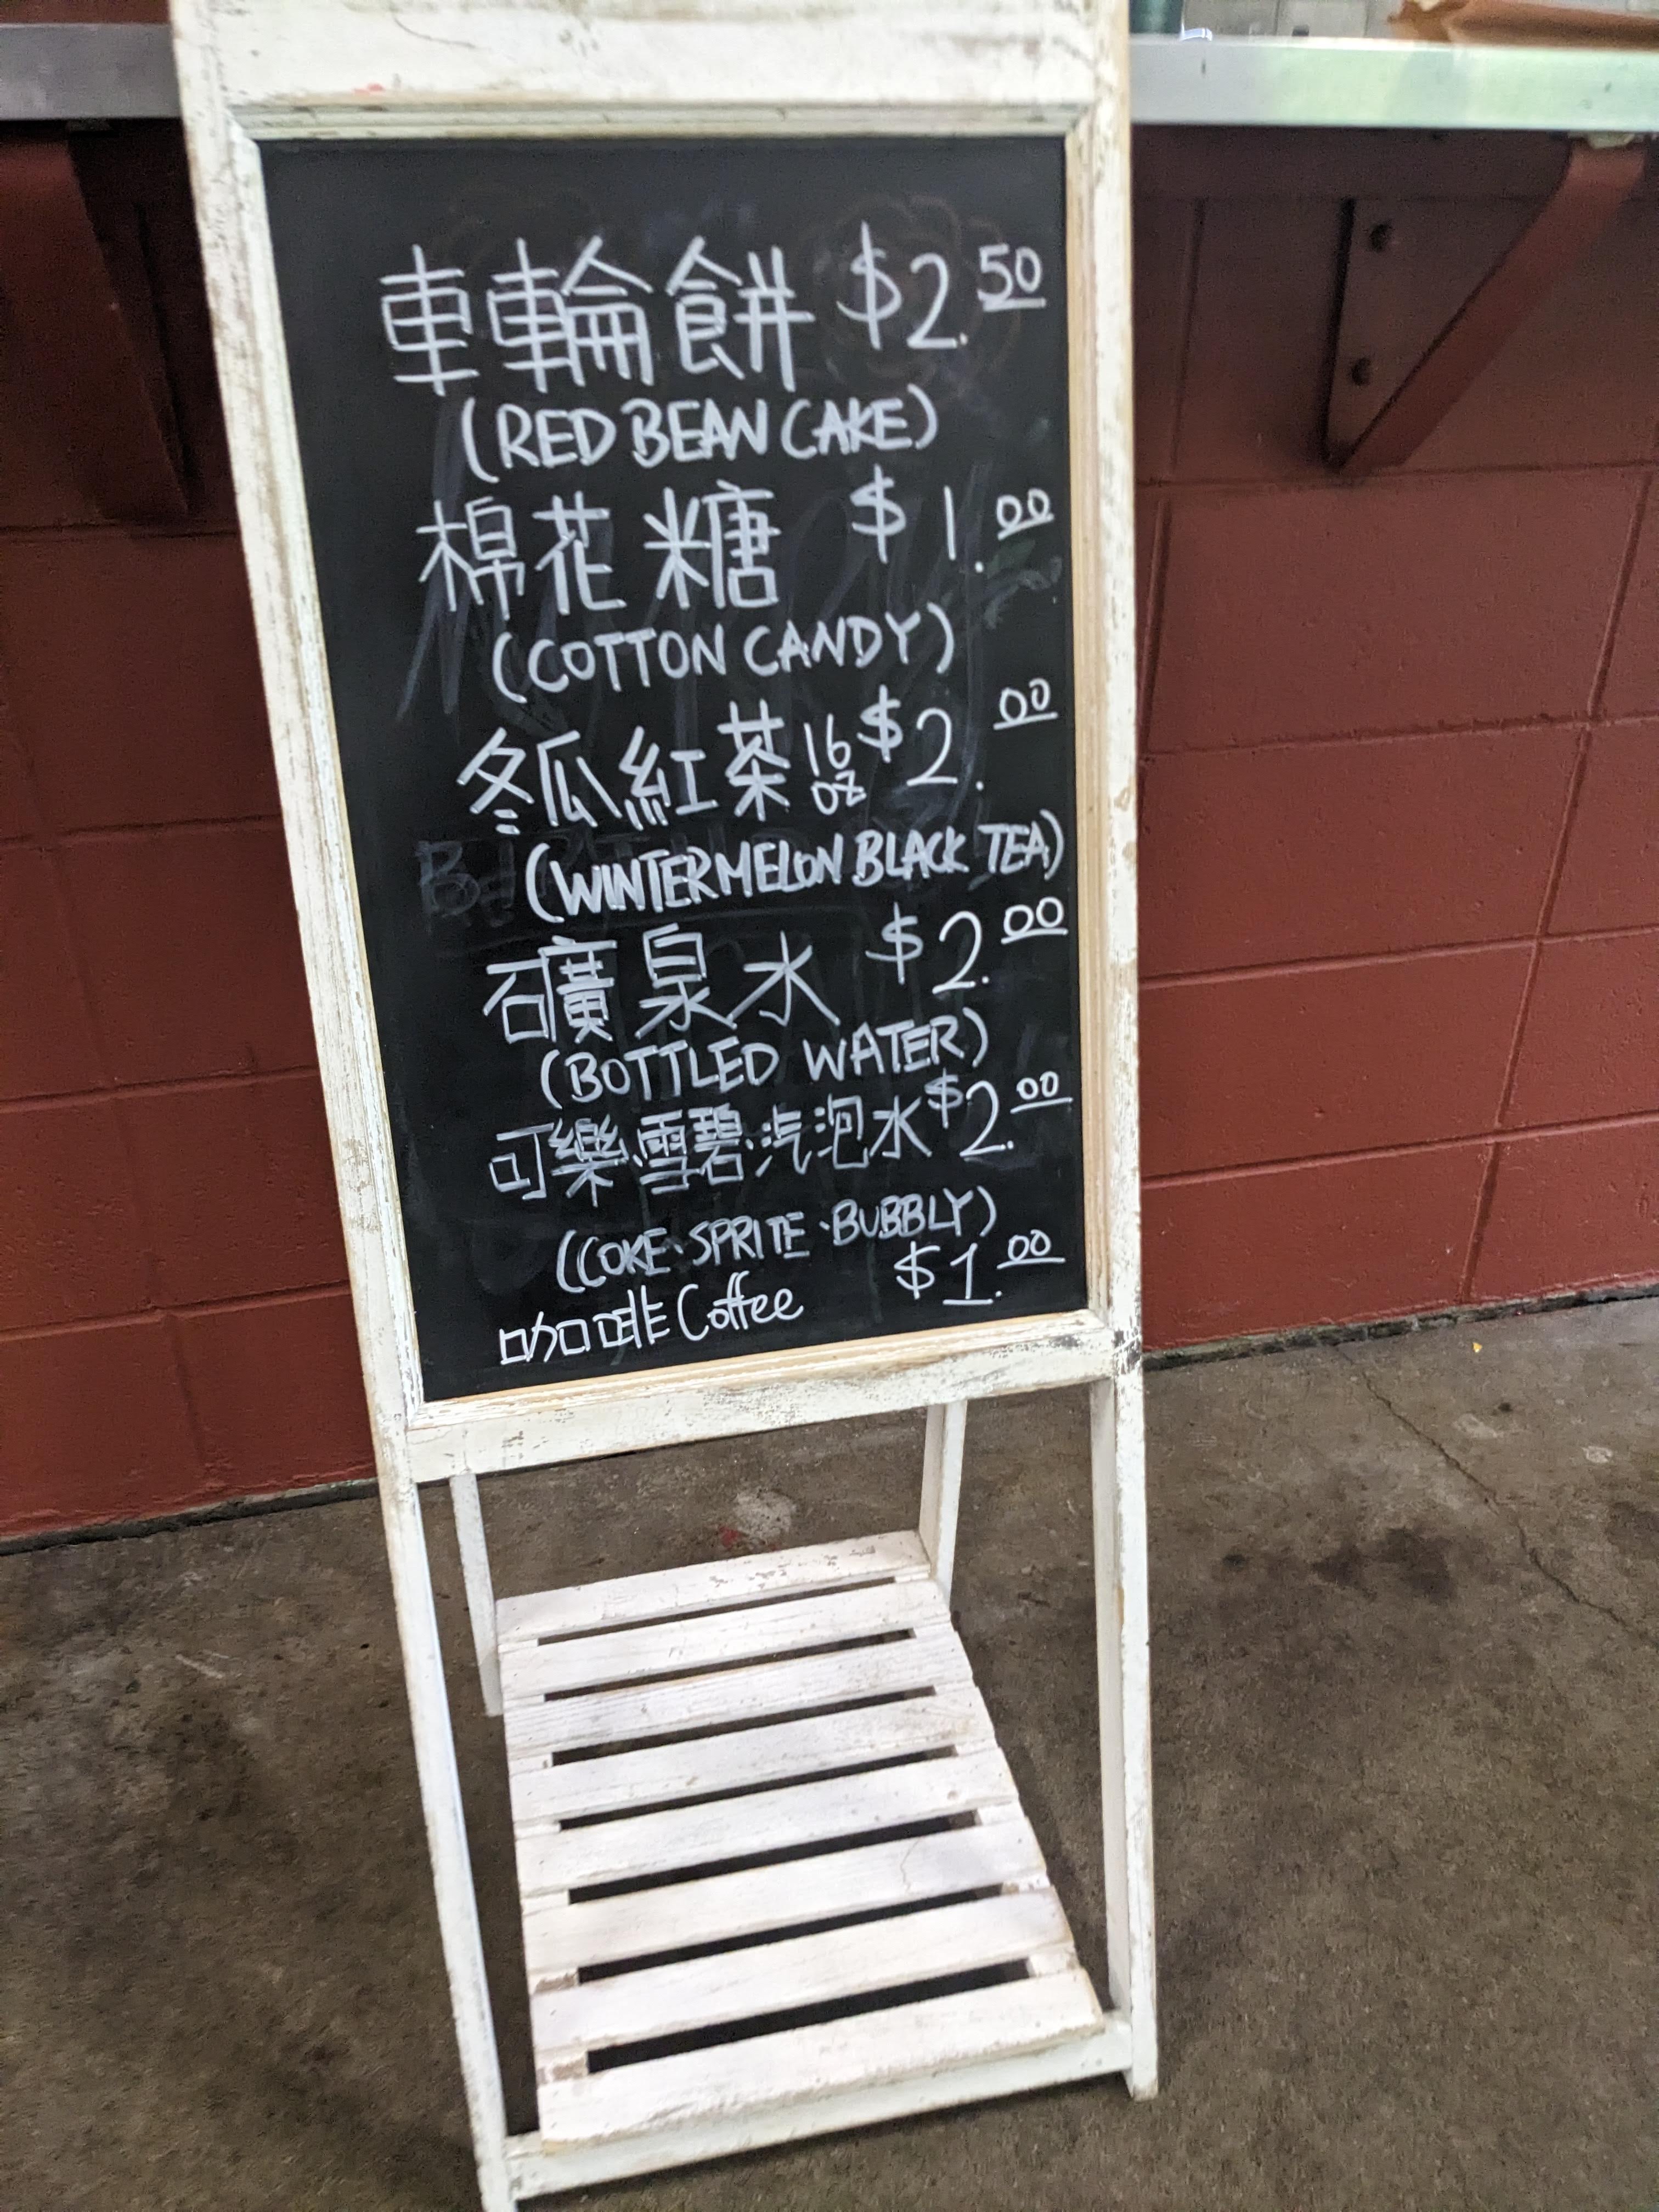 車輪餅 $2.50
(RED BEAN CAKE)
棉花糖 $1.00
(COTTON CANDY)
冬瓜紅茶 16 oz $2.00
(WINTERMELON BLACK TEA)
礦泉水 $2.00
(BOTTLED WATER)
可樂·雪碧·汽泡水 $2.00
(COKE·SPRITE·BUBBLY)
咖啡 Coffee $1.00